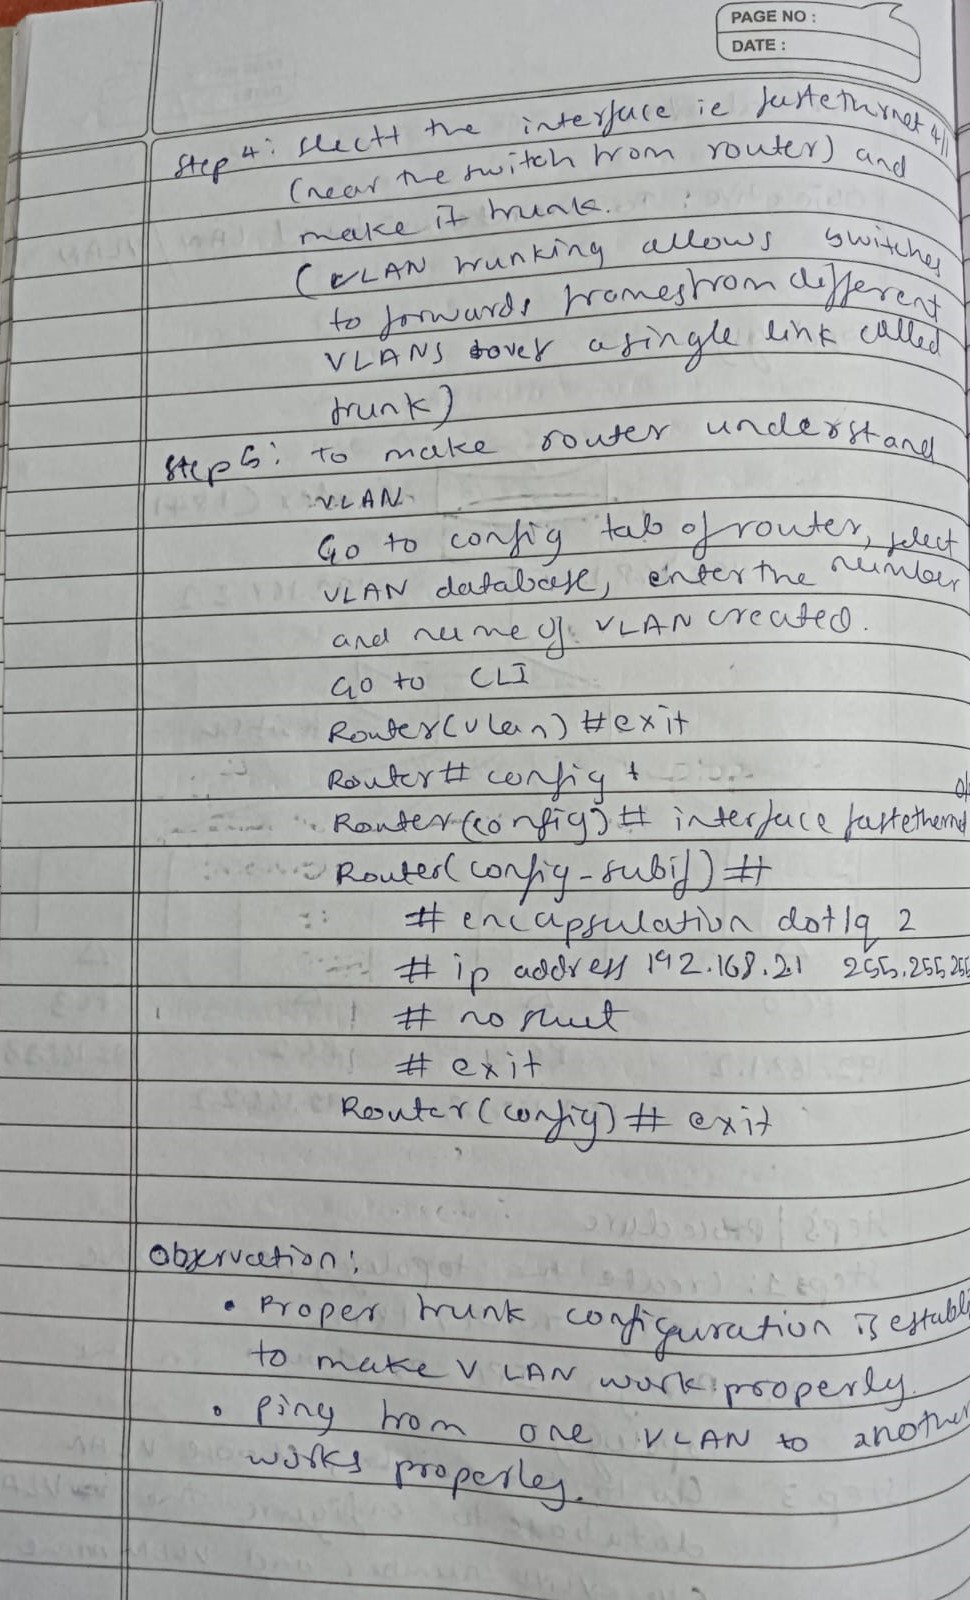 PAGE NO :
DATE :
Step 4: Slectt the interface ie fastethernet 4/1
(near the switch from router) and
make it trunk.
(VLAN trunking allows switches
to forwards frames from different
VLANS over a single link called
trunk)
Step 5: to make router understand
VLAN.
Go to config tab of router, select
VLAN database, enter the number
and name of VLAN created.
Go to CLI
Router(vlan) #exit
Router# config t
Router(config)# interface fastethernet
Router(config-subif)#
# encapsulation dot1q 2
# ip address 192.168.2.1 255.255.255
# no shut
# exit
Router(config)# exit
Observation:
• Proper trunk configuration is establi
to make VLAN work properly.
• Ping from one VLAN to another
works properley.